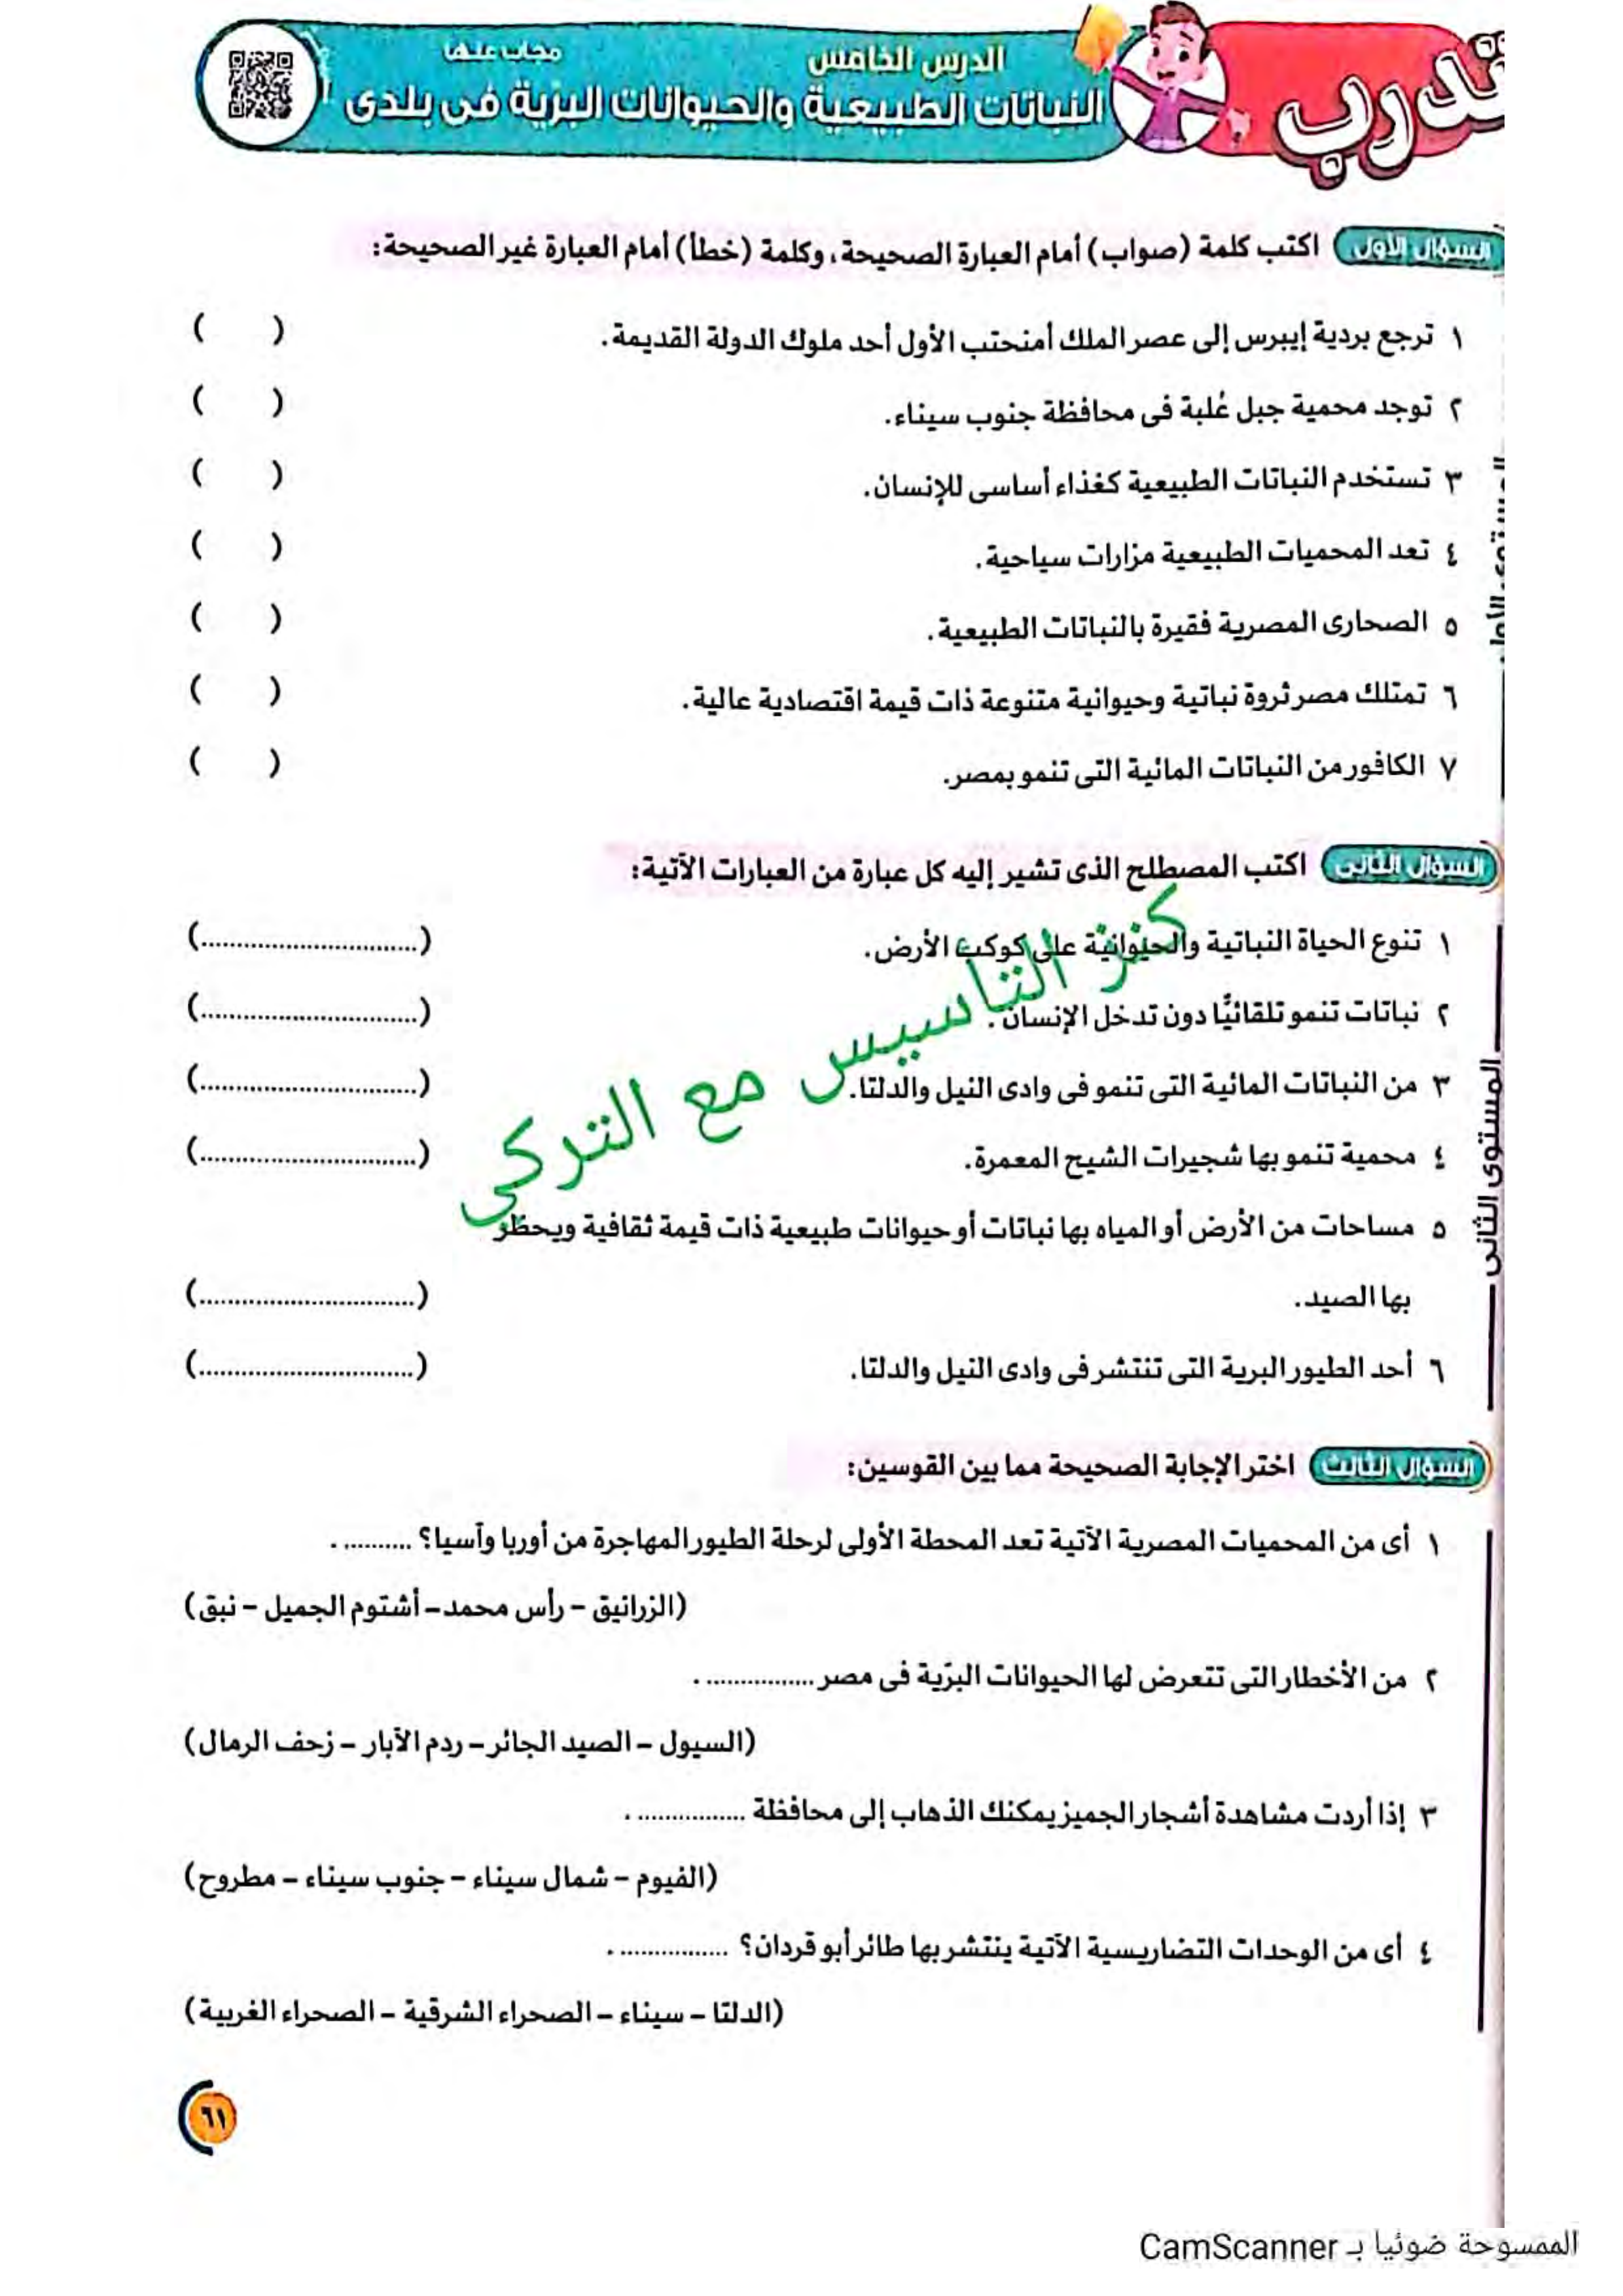 تدرب
الدرس الخامس
مجاب عنها
النباتات الطبيعية والحيوانات البرّية فى بلدى
السؤال الأول اكتب كلمة (صواب) أمام العبارة الصحيحة، وكلمة (خطأ) أمام العبارة غير الصحيحة:
١ ترجع بردية إيبرس إلى عصر الملك أمنحتب الأول أحد ملوك الدولة القديمة. ( )
٢ توجد محمية جبل عُلبة فى محافظة جنوب سيناء. ( )
٣ تستخدم النباتات الطبيعية كغذاء أساسى للإنسان. ( )
٤ تعد المحميات الطبيعية مزارات سياحية. ( )
٥ الصحارى المصرية فقيرة بالنباتات الطبيعية. ( )
٦ تمتلك مصر ثروة نباتية وحيوانية متنوعة ذات قيمة اقتصادية عالية. ( )
٧ الكافور من النباتات المائية التى تنمو بمصر. ( )
السؤال الثانى اكتب المصطلح الذى تشير إليه كل عبارة من العبارات الآتية:
١ تنوع الحياة النباتية والحيوانية على كوكب الأرض. (............................)
٢ نباتات تنمو تلقائيًّا دون تدخل الإنسان. (............................)
٣ من النباتات المائية التى تنمو فى وادى النيل والدلتا. (............................)
٤ محمية تنمو بها شجيرات الشيح المعمرة. (............................)
٥ مساحات من الأرض أو المياه بها نباتات أو حيوانات طبيعية ذات قيمة ثقافية ويحظر
بها الصيد. (............................)
٦ أحد الطيور البرية التى تنتشر فى وادى النيل والدلتا. (............................)
المستوى الثانى
كنز التأسيس مع التركى
السؤال الثالث اختر الإجابة الصحيحة مما بين القوسين:
١ أى من المحميات المصرية الآتية تعد المحطة الأولى لرحلة الطيور المهاجرة من أوربا وآسيا؟ .......... .
(الزرانيق – رأس محمد – أشتوم الجميل – نبق)
٢ من الأخطار التى تتعرض لها الحيوانات البرّية فى مصر ................ .
(السيول – الصيد الجائر – ردم الآبار – زحف الرمال)
٣ إذا أردت مشاهدة أشجار الجميز يمكنك الذهاب إلى محافظة ................ .
(الفيوم – شمال سيناء – جنوب سيناء – مطروح)
٤ أى من الوحدات التضاريسية الآتية ينتشر بها طائر أبو قردان؟ ................ .
(الدلتا – سيناء – الصحراء الشرقية – الصحراء الغربية)
٦١
الممسوحة ضوئيا بـ CamScanner